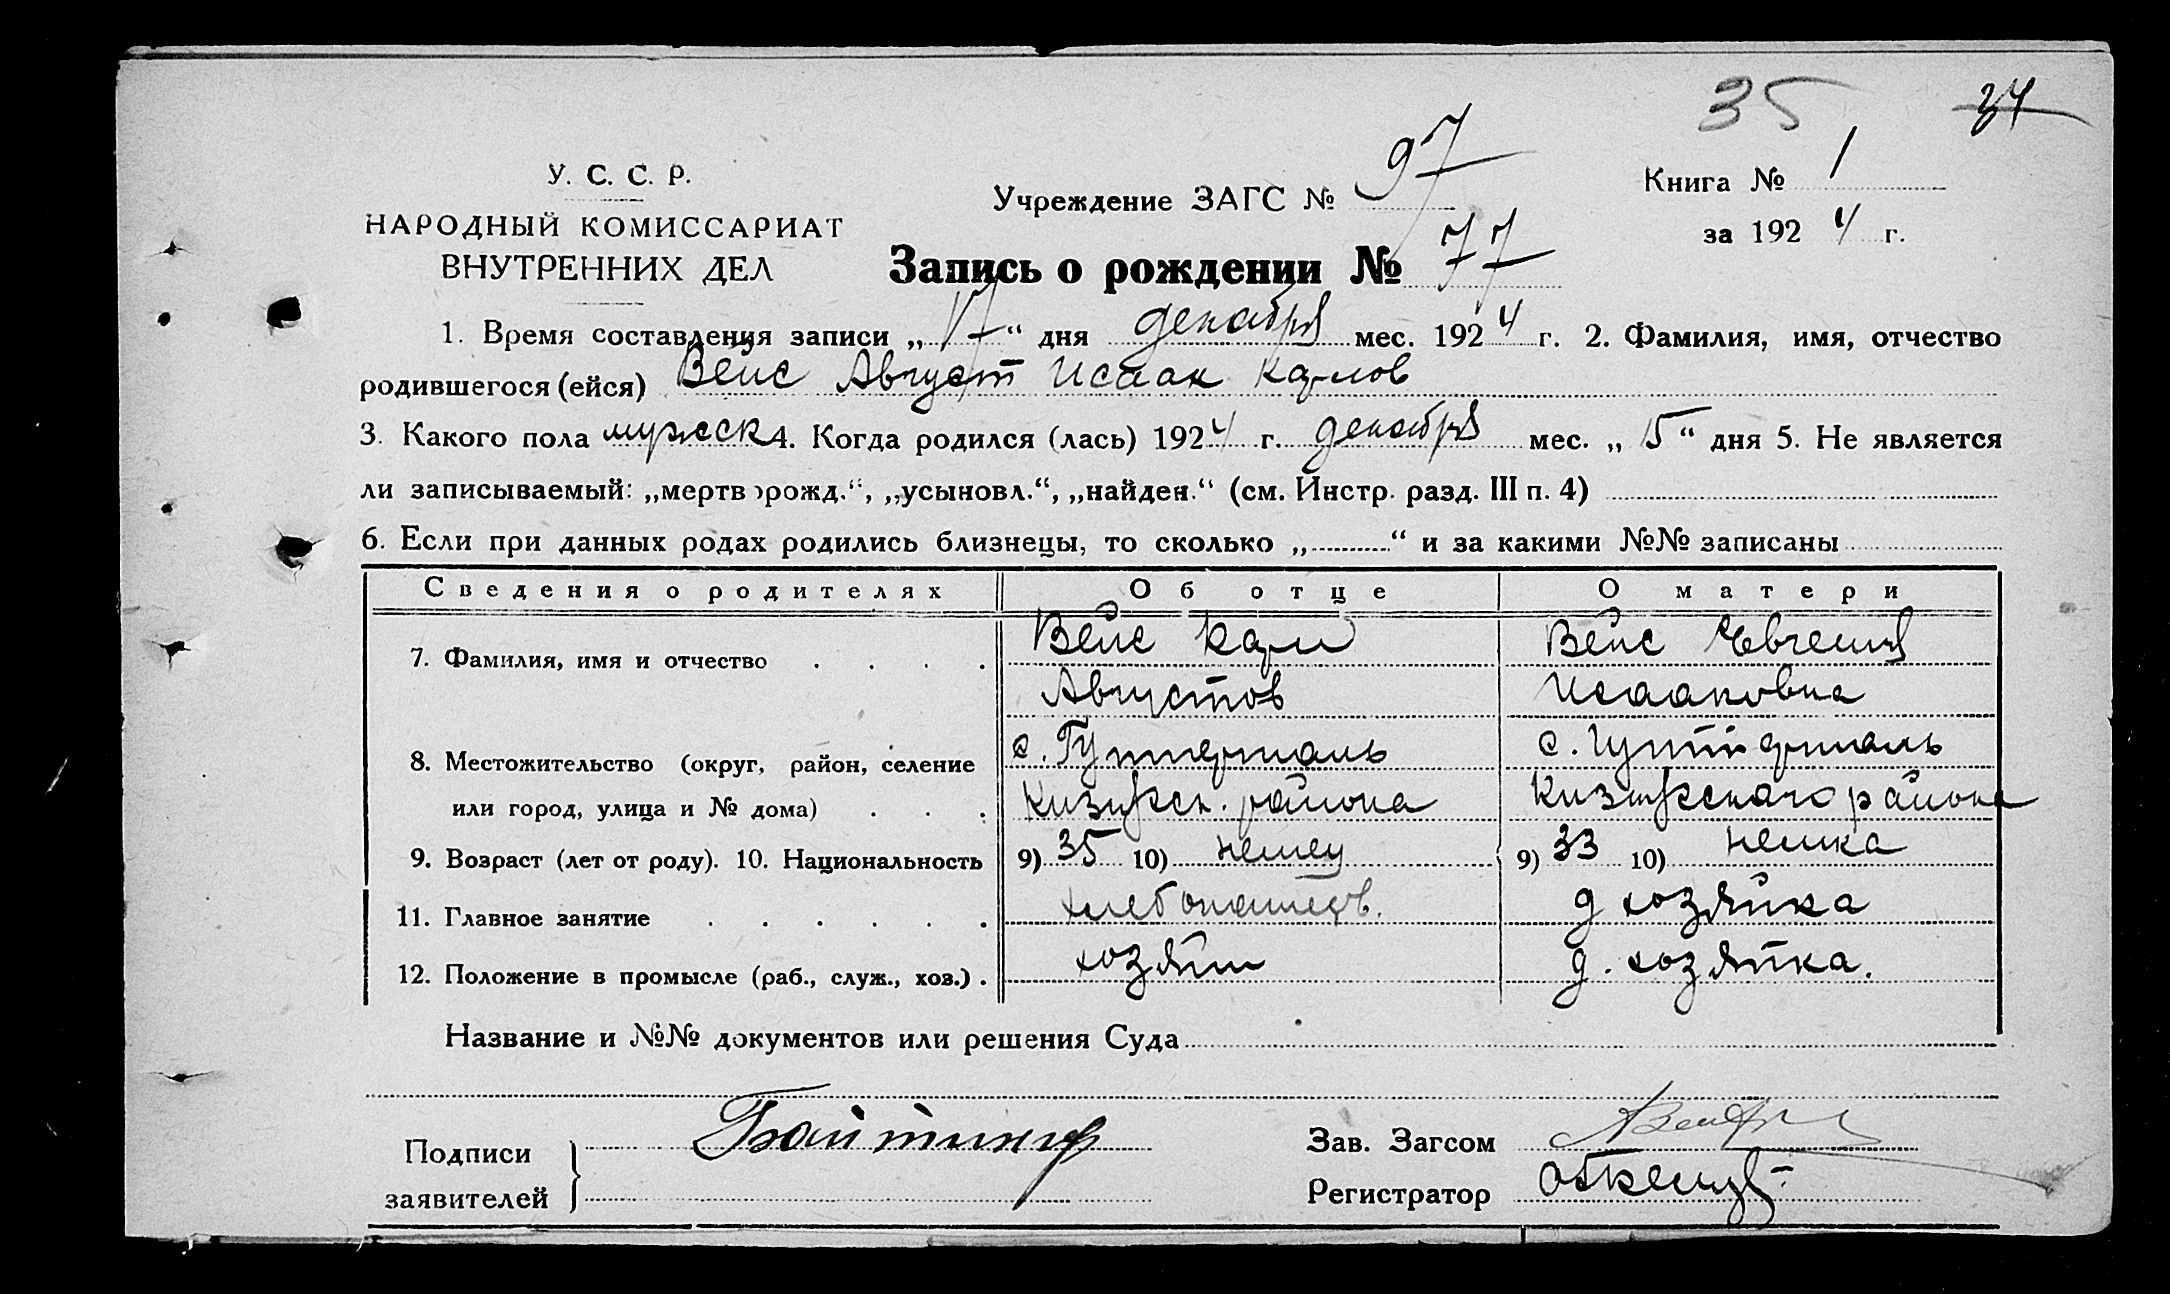 35 34
У. С. С. Р.
НАРОДНЫЙ КОМИССАРИАТ
ВНУТРЕННИХ ДЕЛ
Учреждение ЗАГС № 97
Книга № 1
за 1924 г.
Запись о рождении № 77
1. Время составления записи „17“ дня декабря мес. 1924 г. 2. Фамилия, имя, отчество
родившегося (ейся) Вейс Август Исаак Карлов
3. Какого пола мужск 4. Когда родился (лась) 1924 г. декабря мес. „15“ дня 5. Не является
ли записываемый: „мертворожд.“, „усыновл.“, „найден.“ (см. Инстр. разд. III п. 4)
6. Если при данных родах родились близнецы, то сколько „ “ и за какими №№ записаны
Сведения о родителях Об отце О матери
7. Фамилия, имя и отчество . . . . Вейс Карл Вейс Евгения
Августов Исааковна
8. Местожительство (округ, район, селение с. Гуттерталь с. Гуттерталь
или город, улица и № дома) . . . района района
9. Возраст (лет от роду). 10. Национальность 9) 35 10) немец 9) 33 10) немка
11. Главное занятие . . . . . . хлебопашец. д хозяйка
12. Положение в промысле (раб., служ., хоз.) . хозяин д. хозяйка.
Название и №№ документов или решения Суда
Подписи
заявителей
Зав. Загсом
Регистратор